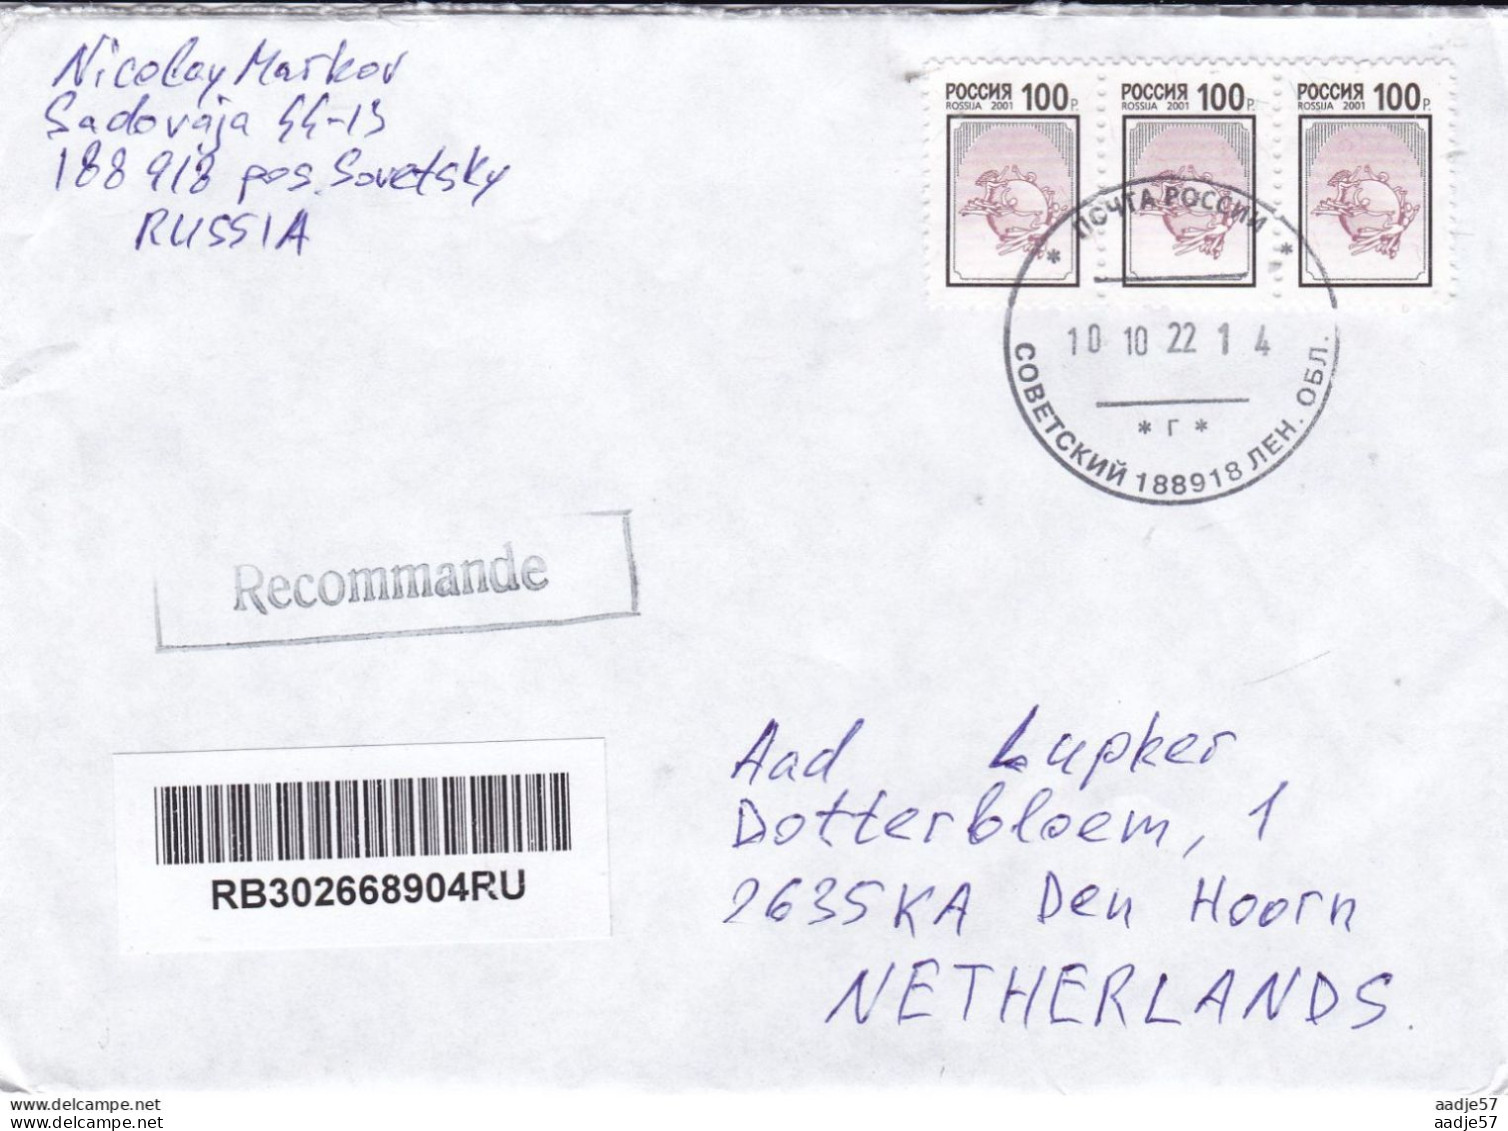 Nicolay Markov
Sadovaja 44-13
188918 pos. Sovetsky
RUSSIA
РОССИЯ 100 Р.
ROSSIJA 2001
РОССИЯ 100 Р.
ROSSIJA 2001
РОССИЯ 100 Р.
ROSSIJA 2001
* ПОЧТА РОССИИ *
10 10 22 1 4
* Г *
СОВЕТСКИЙ 188918 ЛЕН. ОБЛ.
Recommande
RB302668904RU
Aad Lupker
Dotterbloem, 1
2635KA Den Hoorn
NETHERLANDS.
www.delcampe.net
www.delcampe.net
aadje57
aadje57